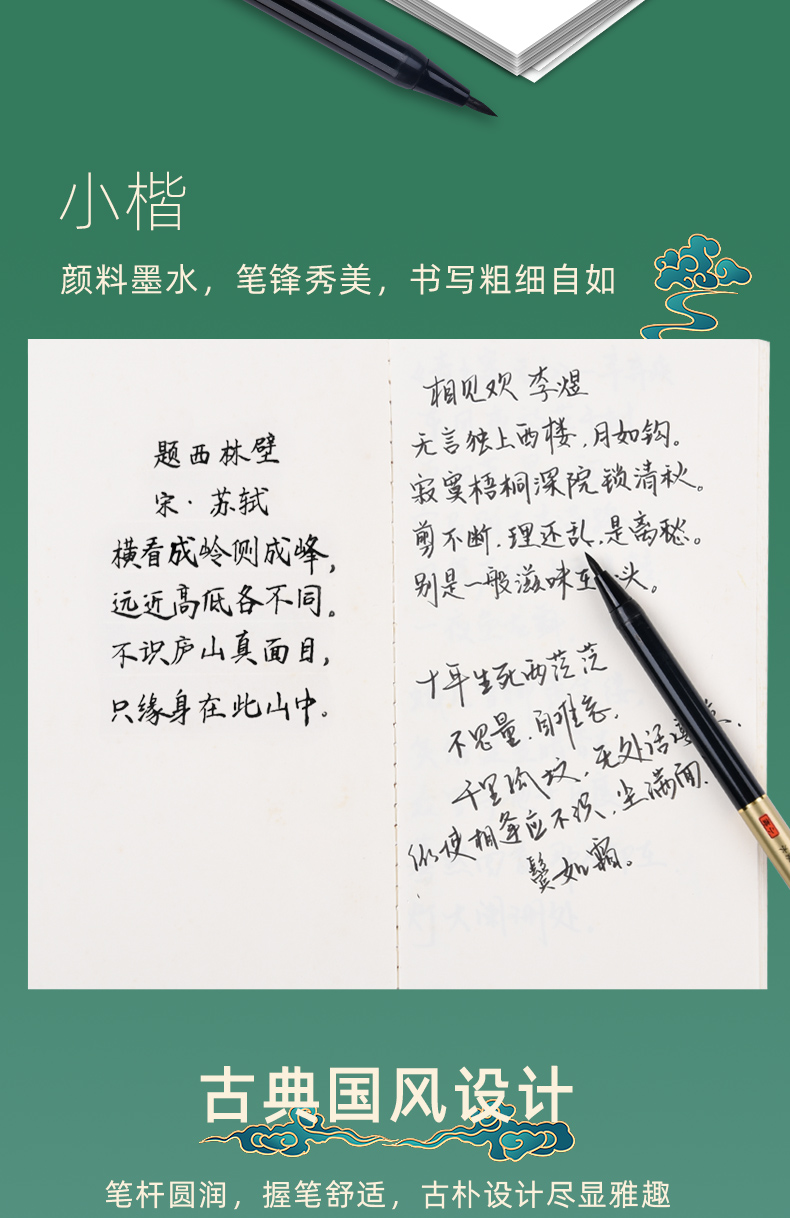 小楷
颜料墨水，笔锋秀美，书写粗细自如
题西林壁
宋·苏轼
横看成岭侧成峰，
远近高低各不同。
不识庐山真面目，
只缘身在此山中。
相见欢 李煜
无言独上西楼，月如钩。
寂寞梧桐深院锁清秋。
剪不断，理还乱，是离愁。
别是一般滋味在 头。
十年生死两茫茫
不思量，自难忘，
千里孤坟，无处话凄凉，
纵使相逢应不识，尘满面，
鬓如霜。
古典国风设计
笔杆圆润，握笔舒适，古朴设计尽显雅趣